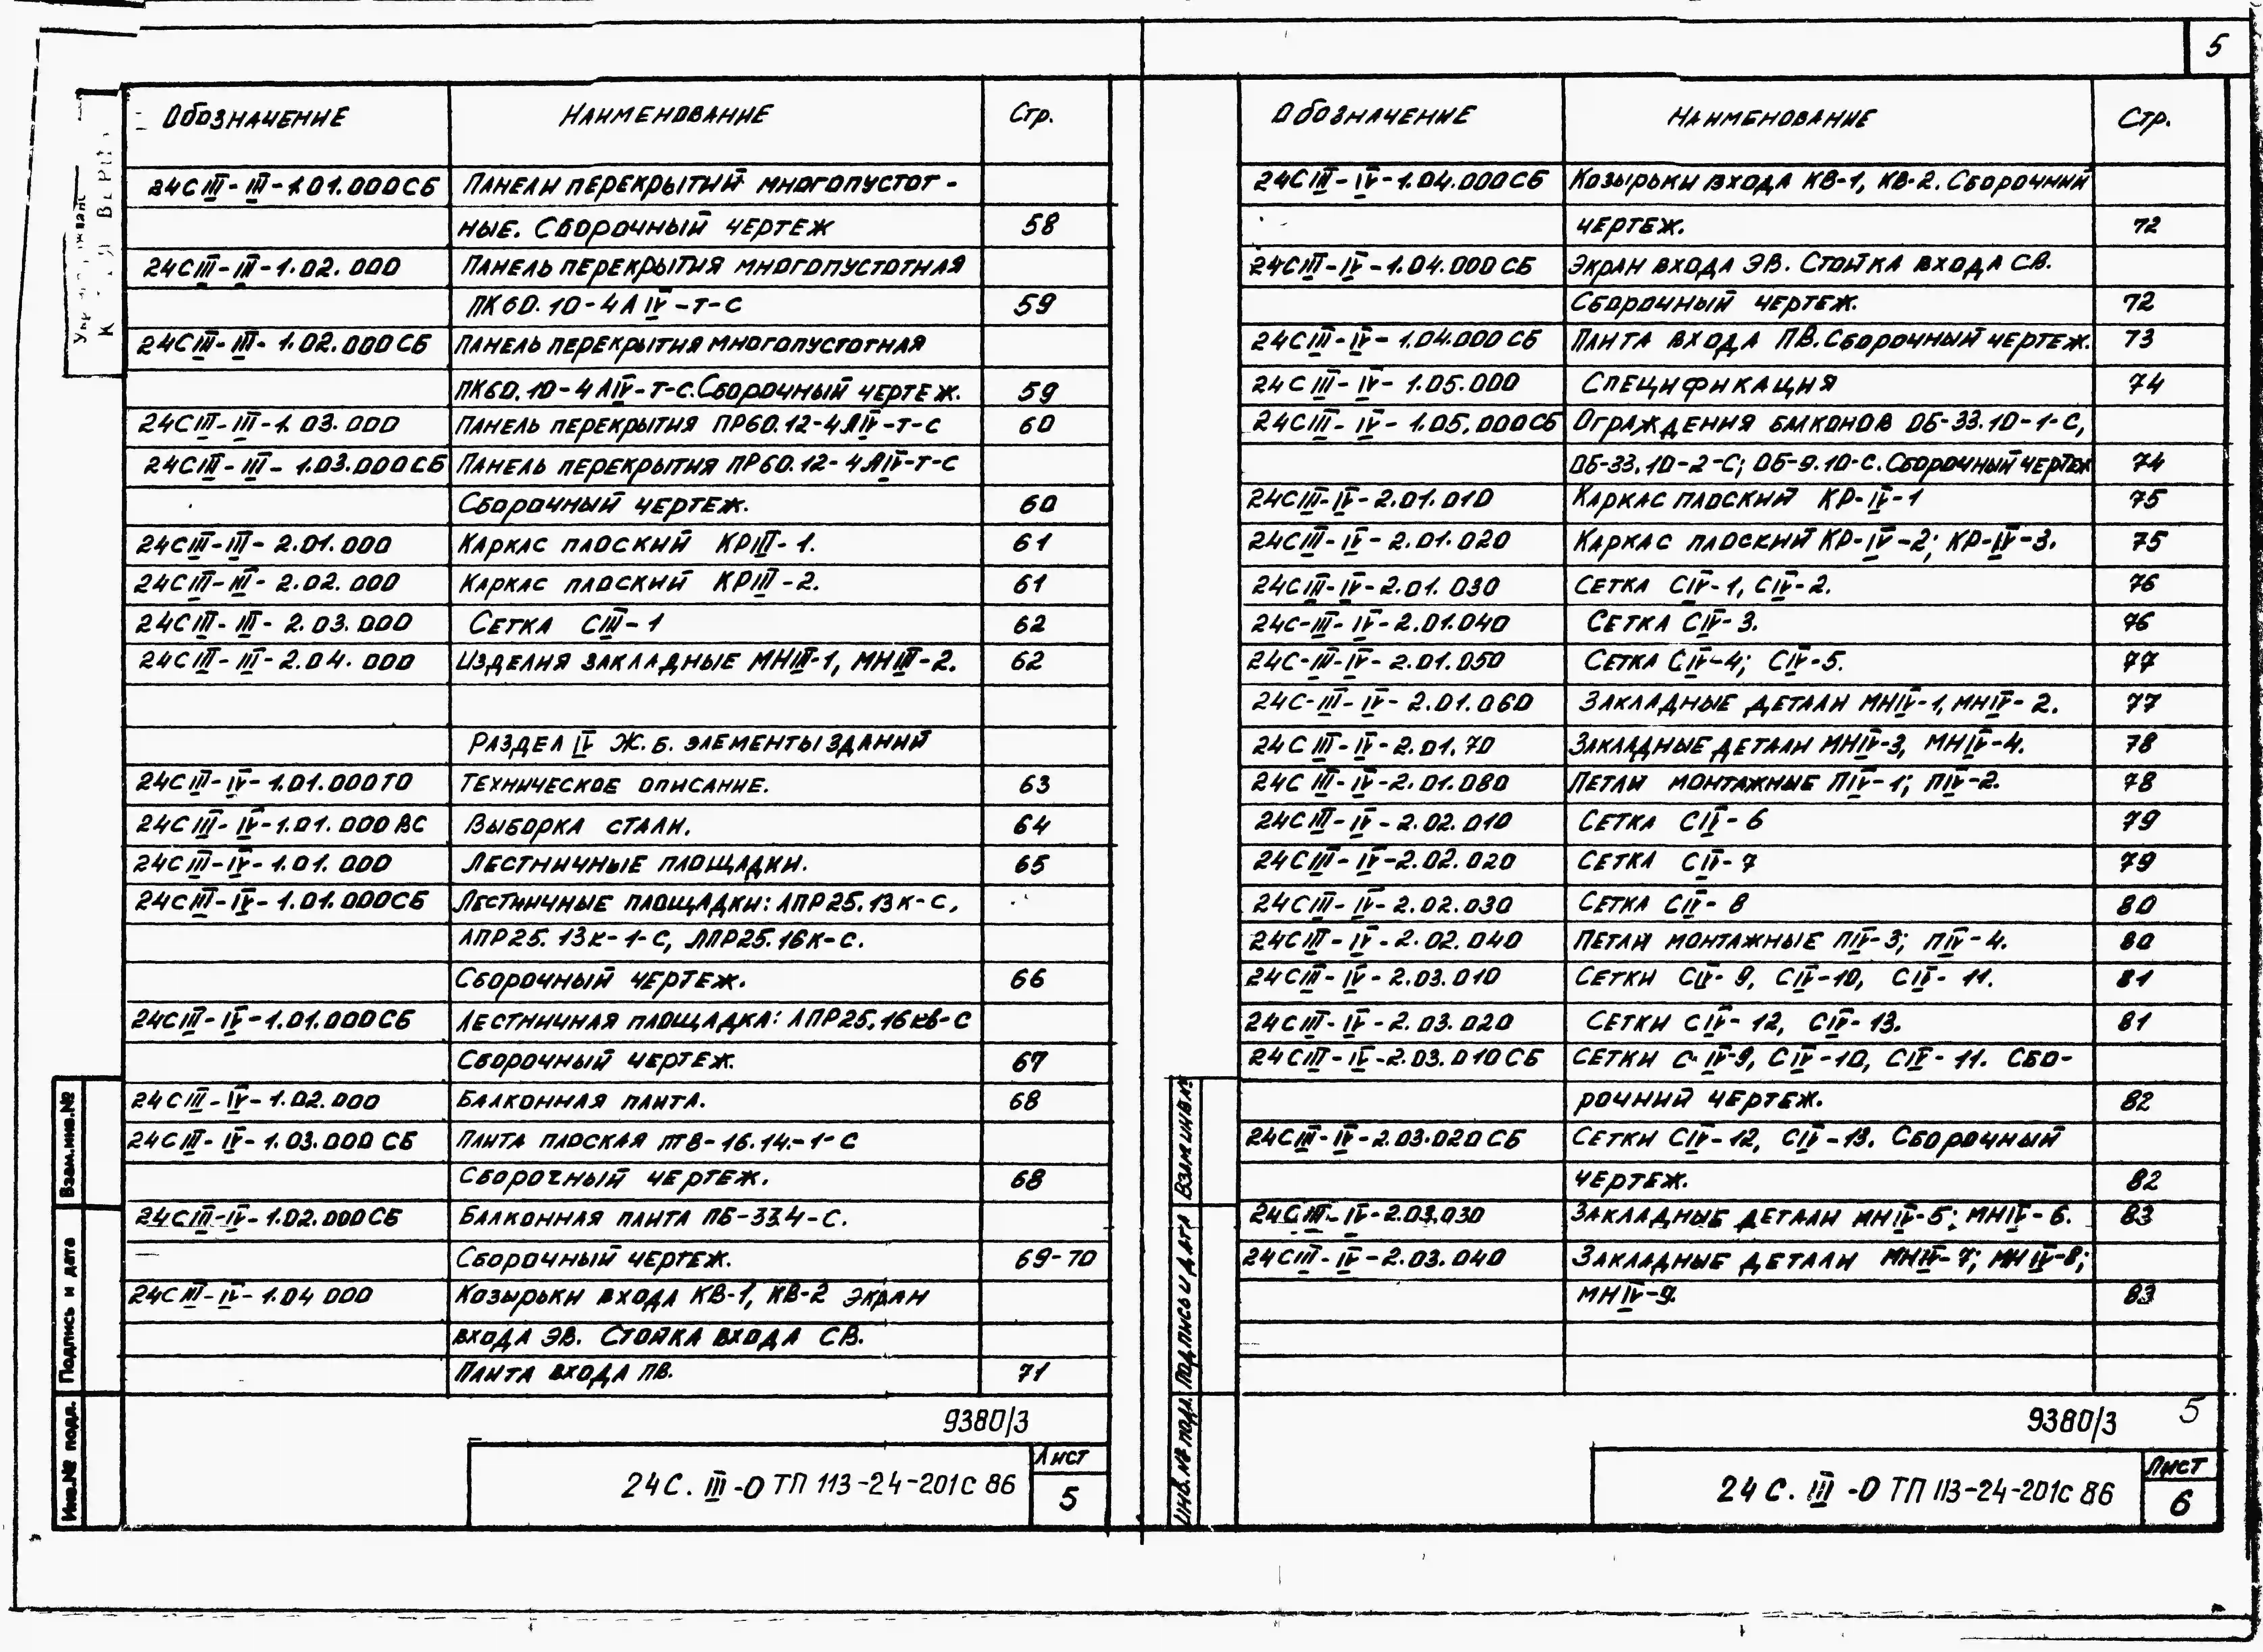 5
Обозначение Наименование Стр.
24С III-III-1.01.000СБ Панели перекрытий многопустот-
ные. Сборочный чертеж 58
24С III-III-1.02.000 Панель перекрытия многопустотная
ПК60.10-4А IV-т-с 59
24С III-III-1.02.000СБ Панель перекрытия многопустотная
ПК60.10-4АIV-т-с. Сборочный чертеж. 59
24С III-III-1.03.000 Панель перекрытия ПР60.12-4АIV-т-с 60
24С III-III-1.03.000СБ Панель перекрытия ПР60.12-4АIV-т-с
Сборочный чертеж. 60
24С III-III-2.01.000 Каркас плоский КРIII-1. 61
24С III-III-2.02.000 Каркас плоский КРIII-2. 61
24С III-III-2.03.000 Сетка СIII-1 62
24С III-III-2.04.000 Изделия закладные МНIII-1, МНIII-2. 62
Раздел IV Ж.б. элементы зданий
24С III-IV-1.01.000ТО Техническое описание. 63
24С III-IV-1.01.000ВС Выборка стали. 64
24С III-IV-1.01.000 Лестничные площадки. 65
24С III-IV-1.01.000СБ Лестничные площадки: ЛПР25.13к-с,
ЛПР25.13к-1-с, ЛПР25.16к-с.
Сборочный чертеж. 66
24С III-IV-1.01.000СБ Лестничная площадка: ЛПР25.16кв-с
Сборочный чертеж. 67
24С III-IV-1.02.000 Балконная плита. 68
24С III-IV-1.03.000 СБ Плита плоская ПТ8-16.14-1-с
Сборочный чертеж. 68
24С III-IV-1.02.000СБ Балконная плита ПБ-33.4-С.
Сборочный чертеж. 69-70
24С III-IV-1.04 000 Козырьки входа КВ-1, КВ-2 экран
входа ЭВ. Стойка входа СВ.
Плита входа ПВ. 71
9380/3
24С. III-О ТП 113-24-201с 86
Лист
5
Взам.инв.№
Подпись и дата
Инв.№ подл.
Обозначение Наименование Стр.
24С III-IV-1.04.000СБ Козырьки входа КВ-1, КВ-2. Сборочный
чертеж. 72
24С III-IV-1.04.000 СБ Экран входа ЭВ. Стойка входа СВ.
Сборочный чертеж. 72
24С III-IV-1.04.000 СБ Плита входа ПВ. Сборочный чертеж. 73
24С III-IV-1.05.000 Спецификация 74
24С III-IV-1.05.000СБ Ограждения балконов ОБ-33.10-1-С,
ОБ-33.10-2-С; ОБ-9.10-С. Сборочный чертеж 74
24С III-IV-2.01.010 Каркас плоский КР-IV-1 75
24С III-IV-2.01.020 Каркас плоский КР-IV-2; КР-IV-3. 75
24С III-IV-2.01.030 Сетка СIV-1, СIV-2. 76
24С-III-IV-2.01.040 Сетка СIV-3. 76
24С-III-IV-2.01.050 Сетка СIV-4; СIV-5. 77
24С-III-IV-2.01.060 Закладные детали МНIV-1, МНIV-2. 77
24С III-IV-2.01.70 Закладные детали МНIV-3, МНIV-4. 78
24С III-IV-2.01.080 Петли монтажные ПIV-1; ПIV-2. 78
24С III-IV-2.02.010 Сетка СIV-6 79
24С III-IV-2.02.020 Сетка СIV-7 79
24С III-IV-2.02.030 Сетка СIV-8 80
24С III-IV-2.02.040 Петли монтажные ПIV-3; ПIV-4. 80
24С III-IV-2.03.010 Сетки СIV-9, СIV-10, СIV-11. 81
24С III-IV-2.03.020 Сетки СIV-12, СIV-13. 81
24С III-IV-2.03.010СБ Сетки С-IV-9, СIV-10, СIV-11. Сбо-
рочний чертеж. 82
24С III-IV-2.03.020СБ Сетки СIV-12, СIV-13. Сборочный
чертеж. 82
24С III-IV-2.03.030 Закладные детали МНIV-5; МНIV-6. 83
24С III-IV-2.03.040 Закладные детали МНIV-7; МНIV-8;
МНIV-9. 83
9380/3 5
24С. III-О ТП 113-24-201с 86
Лист
6
Взам инв.№
Подпись и дата
Инв.№ подл.